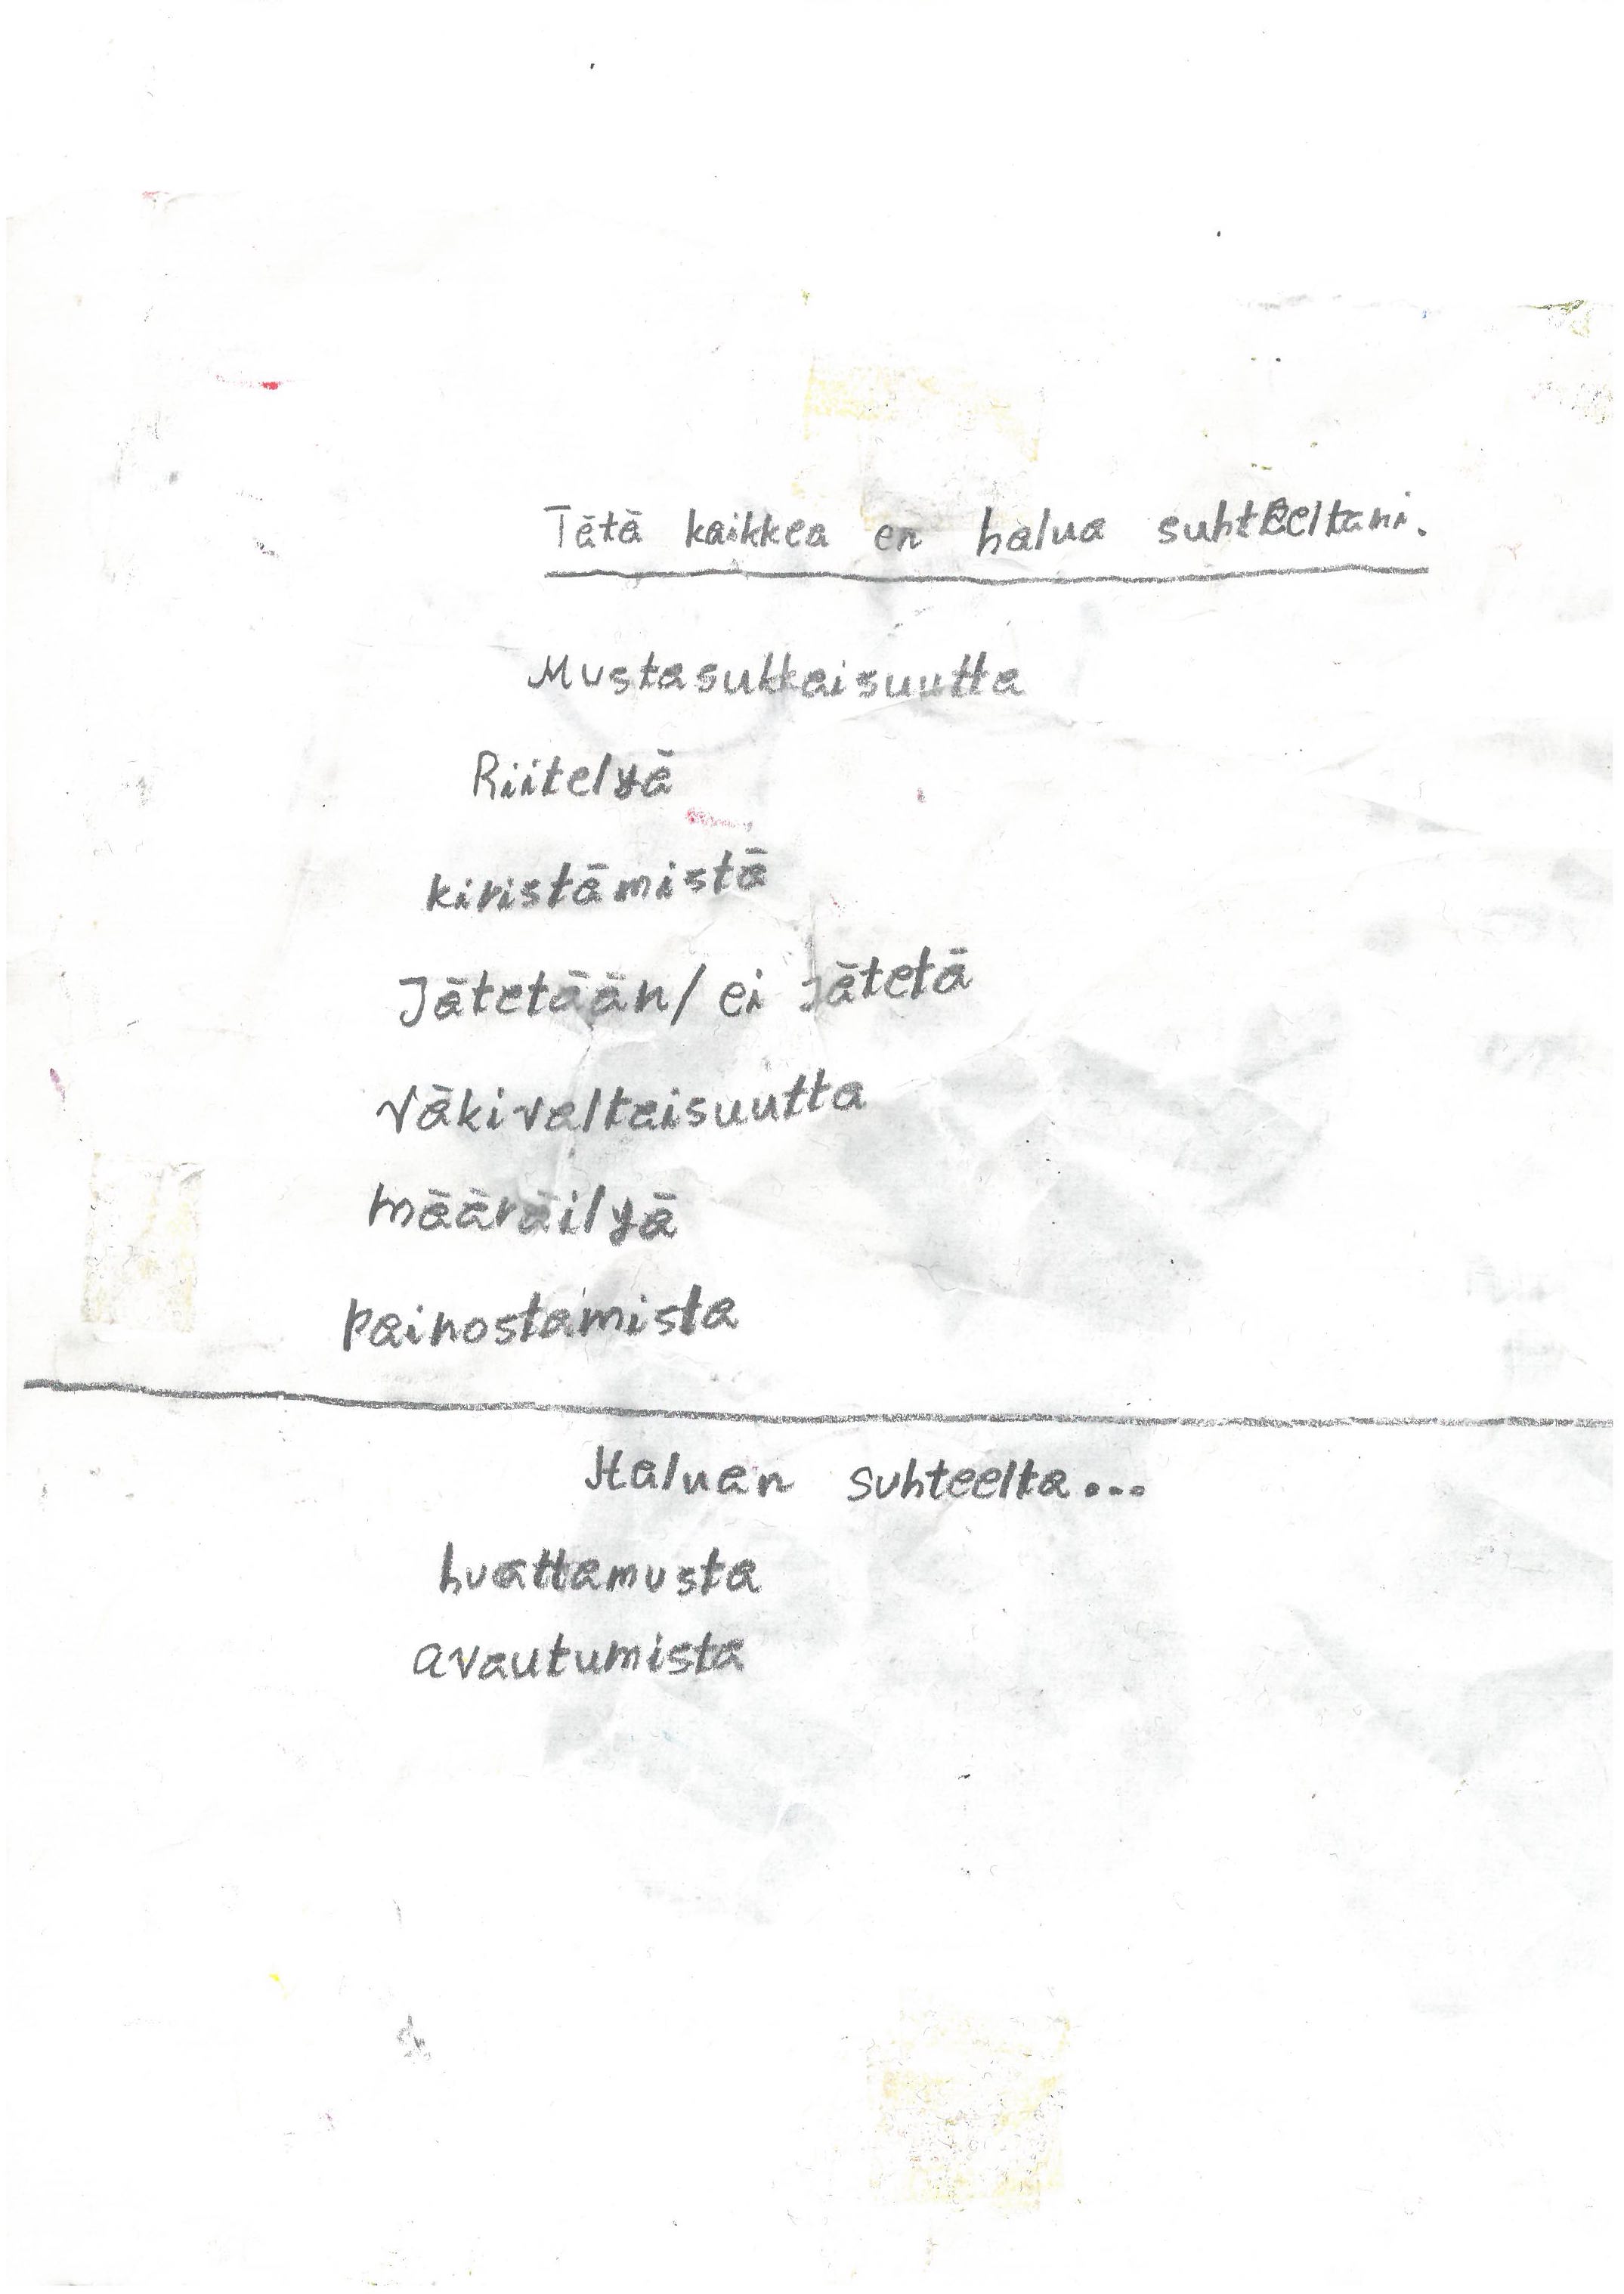 Tätä kaikkea en halua suhteeltani.
Mustasukkaisuutta
Riitelyä
kiristämistä
Jätetään/ ei jätetä
Väkivaltaisuutta
määräilyä
painostamista
Haluan suhteelta...
luottamusta
avautumista